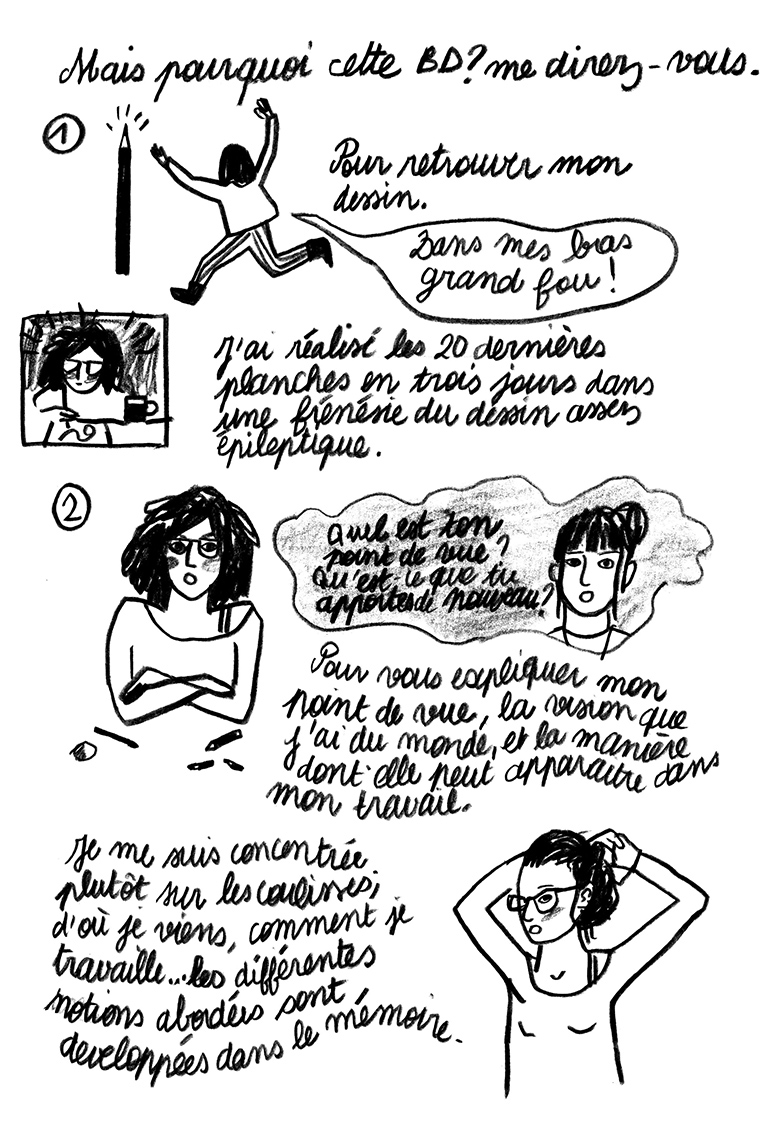 Mais pourquoi cette BD? me direz-vous.
1
Pour retrouver mon
dessin.
Dans mes bras
grand fou!
J'ai réalisé les 20 dernières
planches en trois jours dans
une frénésie du dessin assez
épileptique.
2
Quel est ton
point de vue?
Qu'est-ce que tu
apportes de nouveau?
Pour vous expliquer mon
point de vue, la vision que
j'ai du monde, et la manière
dont elle peut apparaître dans
mon travail.
Je me suis concentrée
plutôt sur les coulisses;
d'où je viens, comment je
travaille...les différentes
notions abordées sont
developpées dans le mémoire.